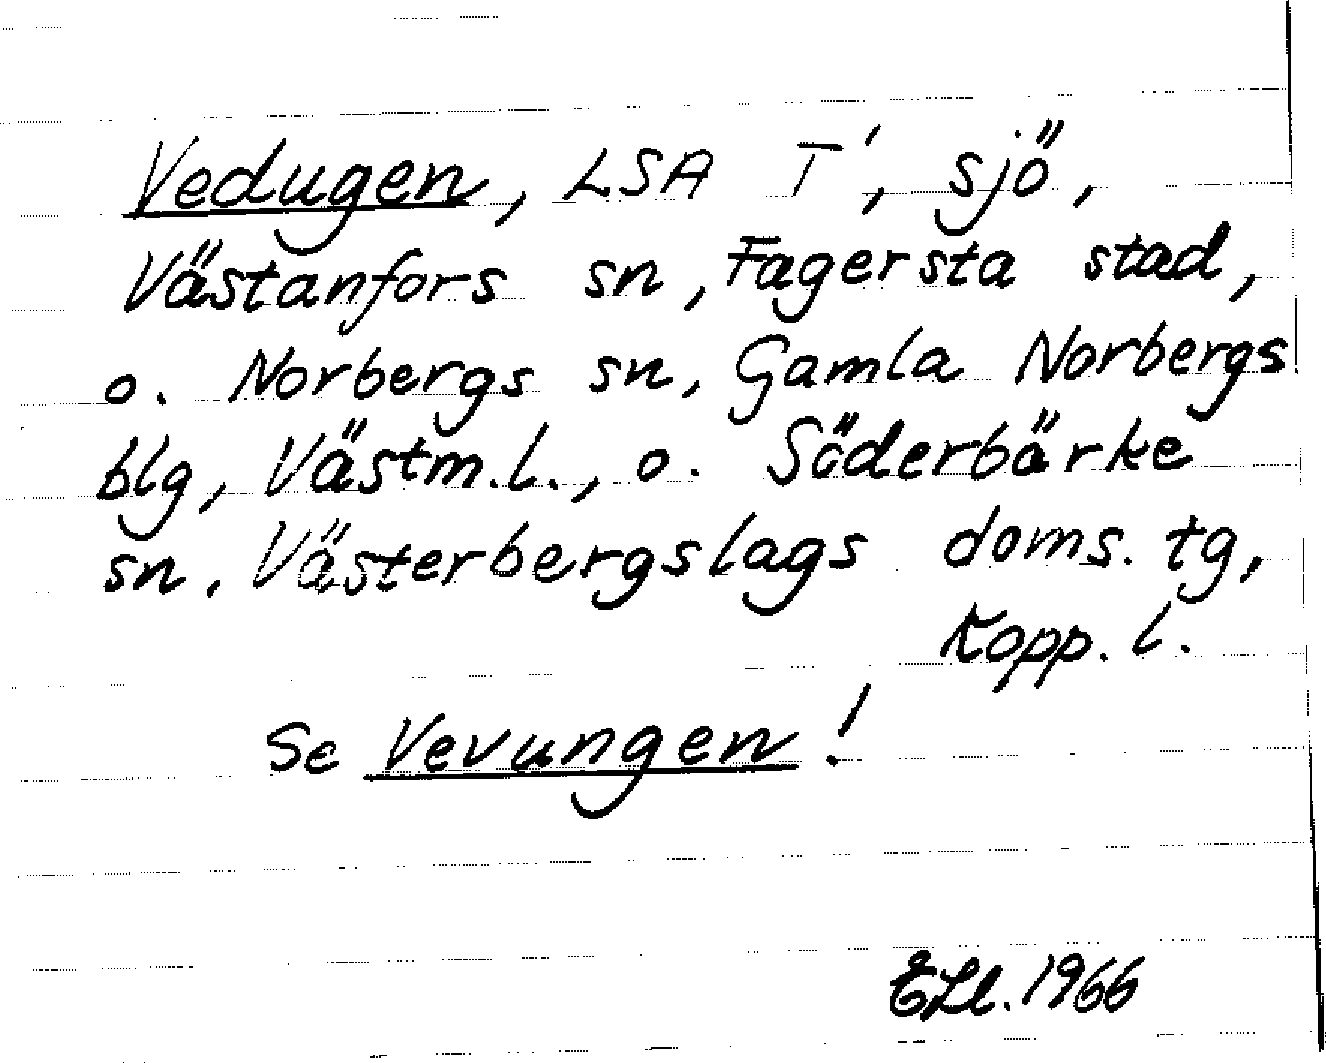 Vedugen, LSA T', sjö,
Västanfors sn, Fagersta stad,
o. Norbergs sn, Gamla Norbergs
blg, Västm.l., o. Söderbärke
sn, Västerbergslags doms. tg,
Kopp. l.
Se Vevungen!
1966